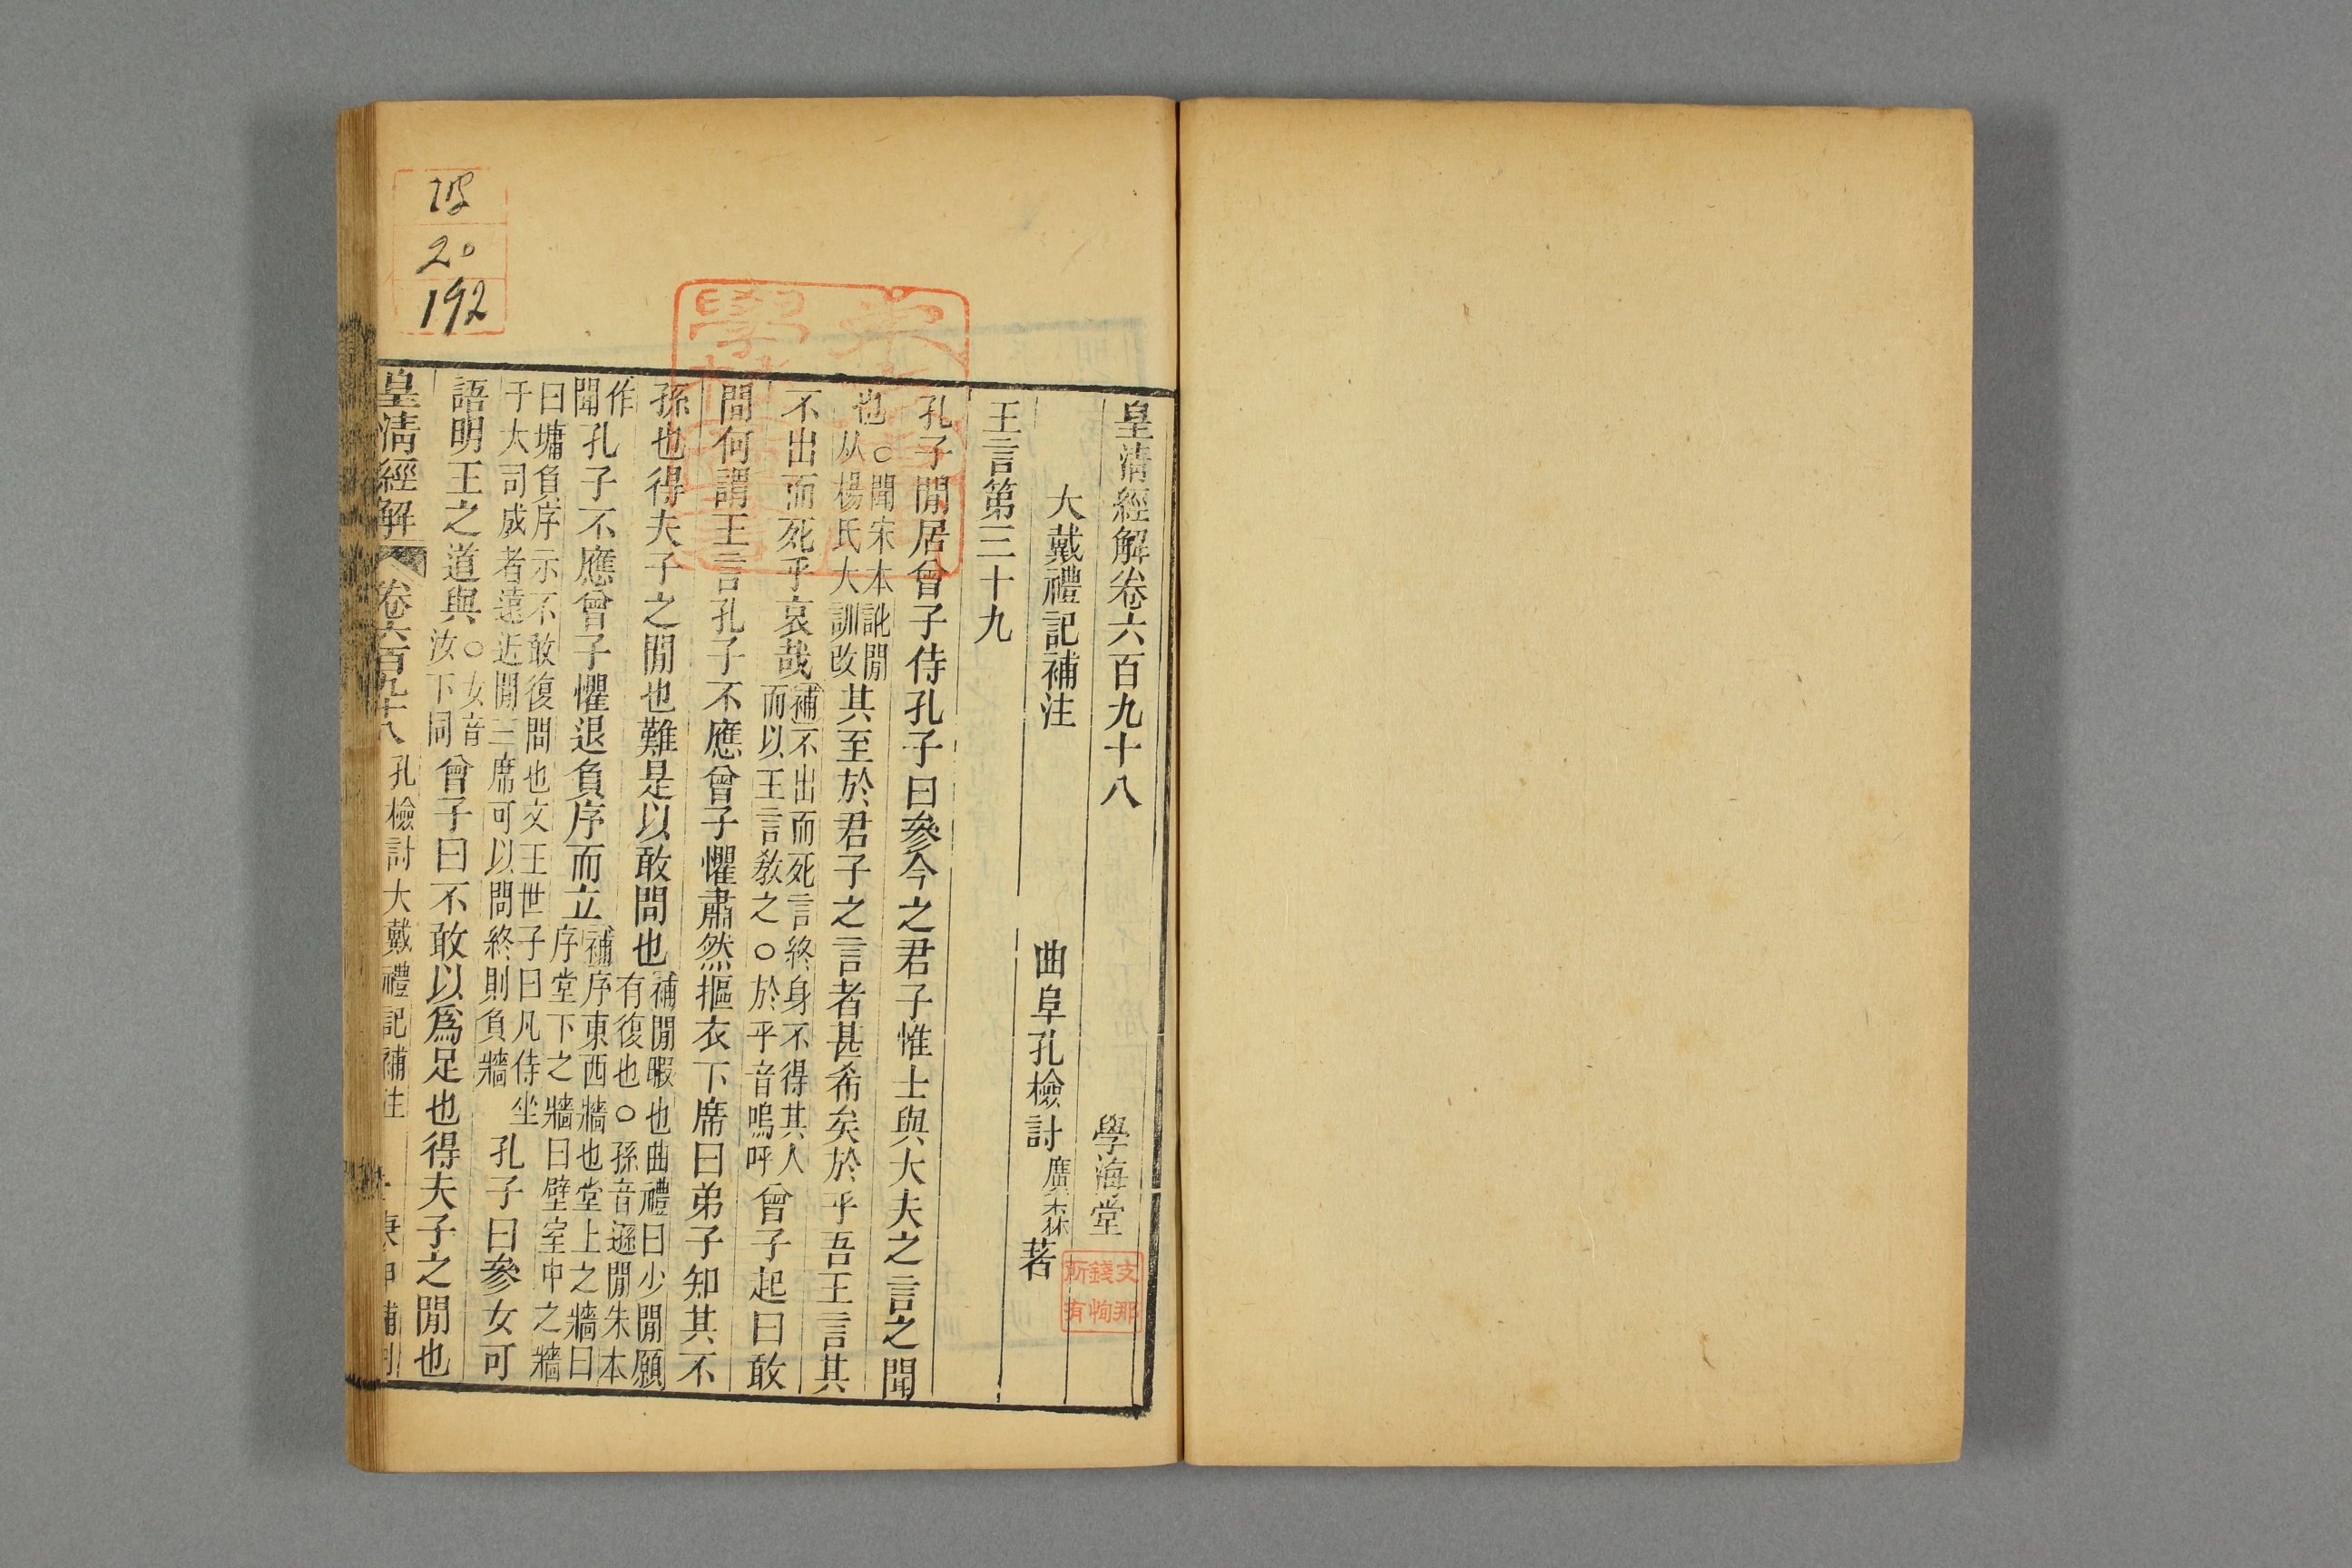 皇清經解卷六百九十八
學海堂
大戴禮記補注
曲阜孔檢討廣森著
王言第三十九
孔子閒居曾子侍孔子曰參今之君子惟士與大夫之言之聞
也○聞宋本訛閒从楊氏大訓改其至於君子之言者甚希矣於乎吾王言其
不出而死乎哀哉補不出而死言終身不得其人而以王言敎之○於乎音嗚呼曾子起曰敢
問何謂王言孔子不應曾子懼肅然摳衣下席曰弟子知其不
孫也得夫子之閒也難是以敢問也補閒暇也曲禮曰少閒願有復也○孫音遜閒朱本
作聞孔子不應曾子懼退負序而立補序東西牆也堂上之牆曰序堂下之牆曰壁室中之牆
曰墉負序示不敢復問也文王世子曰凡侍坐于大司成者遠近閒三席可以問終則負牆孔子曰參女可
語明王之道與○女音汝下同曾子曰不敢以爲足也得夫子之閒也
皇清經解
卷六百九十八
孔檢討大戴禮記補注
支那錢恂所有
20
192